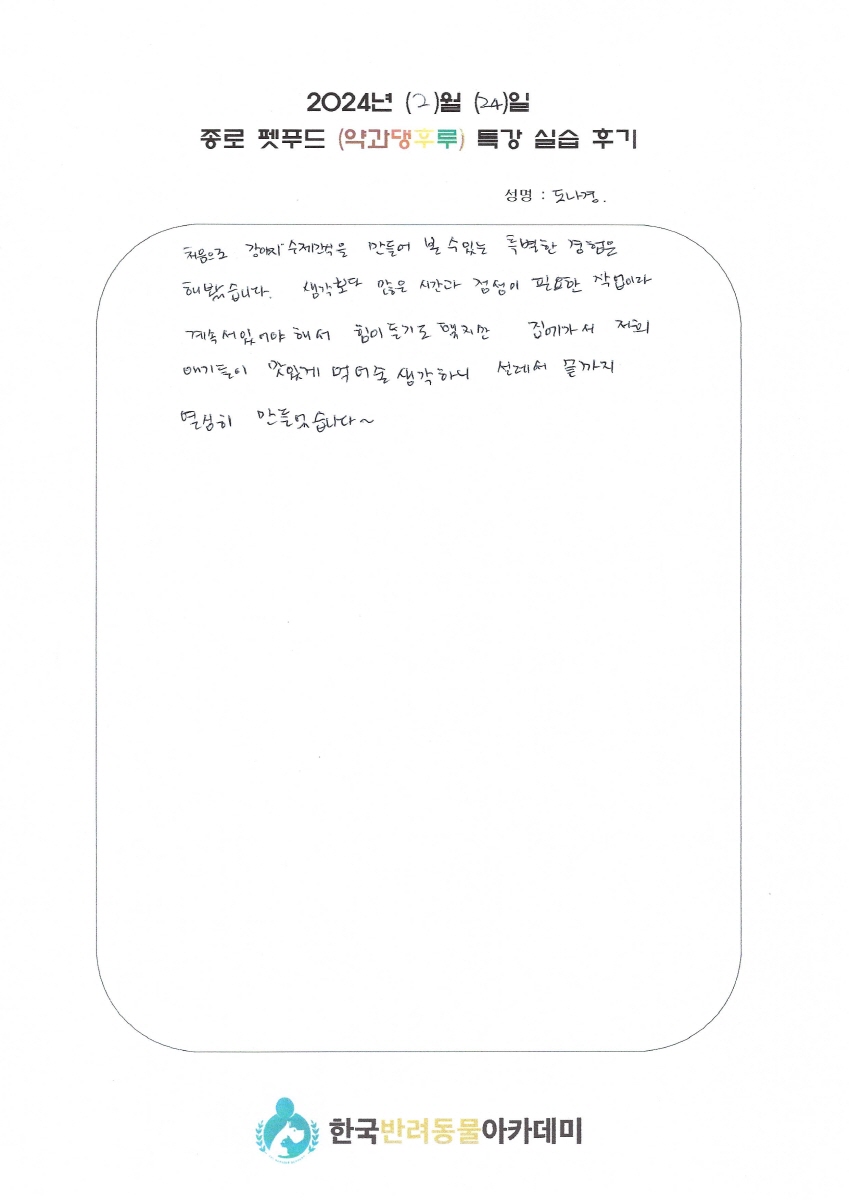 2024년 (2)월 (24)일
종로 펫푸드 (약과댕후루) 특강 실습 후기
성명 : 도나경.
처음으로 강아지 수제간식을 만들어 볼 수있는 특별한 경험은
해봤습니다. 생각보다 많은 시간과 정성이 필요한 작업이라
계속 서있어야 해서 힘이 들기도 했지만 집에가서 저희
애기들이 맛있게 먹어줄 생각하니 설레서 끝까지
열심히 만들었습니다~
한국반려동물아카데미